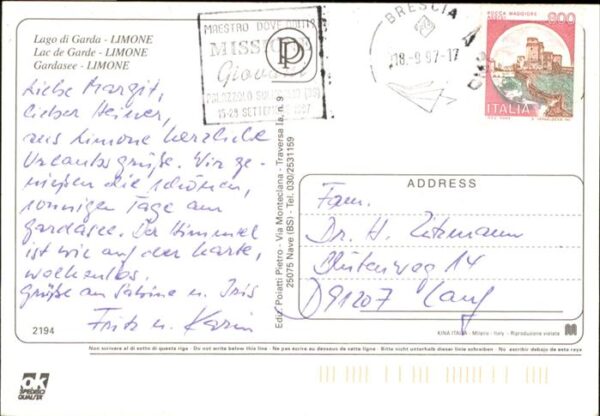 Lago di Garda - LIMONE
Lac de Garde - LIMONE
Gardasee - LIMONE
Liebe Margit,
lieber Heiner,
aus Limone herzliche
Urlaubsgrüße. Wir ge-
nießen die schönen,
sonnigen Tage am
Gardasee. Der Himmel
ist wie auf der Karte,
wolkenlos.
Grüße an Sabine u. Iris
Fritz u. Karin
2194
MAESTRO DOVE ABITI?
MISSIONE
Giovani
15-28 SETTEMBRE 1997
PP
BRESCIA
18-9 97-17
ROCCA MAGGIORE
ASSISI
800
ITALIA
Ediz. Poiatti Pietro - Via Monteclana - Traversa Ia, n. 9
25075 Nave (BS) - Tel. 030/2531159
ADDRESS
Fam.
Dr. H.
Blütenweg 14
D 91207 Lauf
KINA ITALIA - Milano - Italy - Riproduzione vietata
Non scrivere al di sotto di questa riga - Do not write below this line - Ne pas écrire au dessous de cette ligne - Bitte nicht unterhalb dieser linie schreiben - No escribir debajo de esta raya
OK
SPEDISCI
QUALSTER